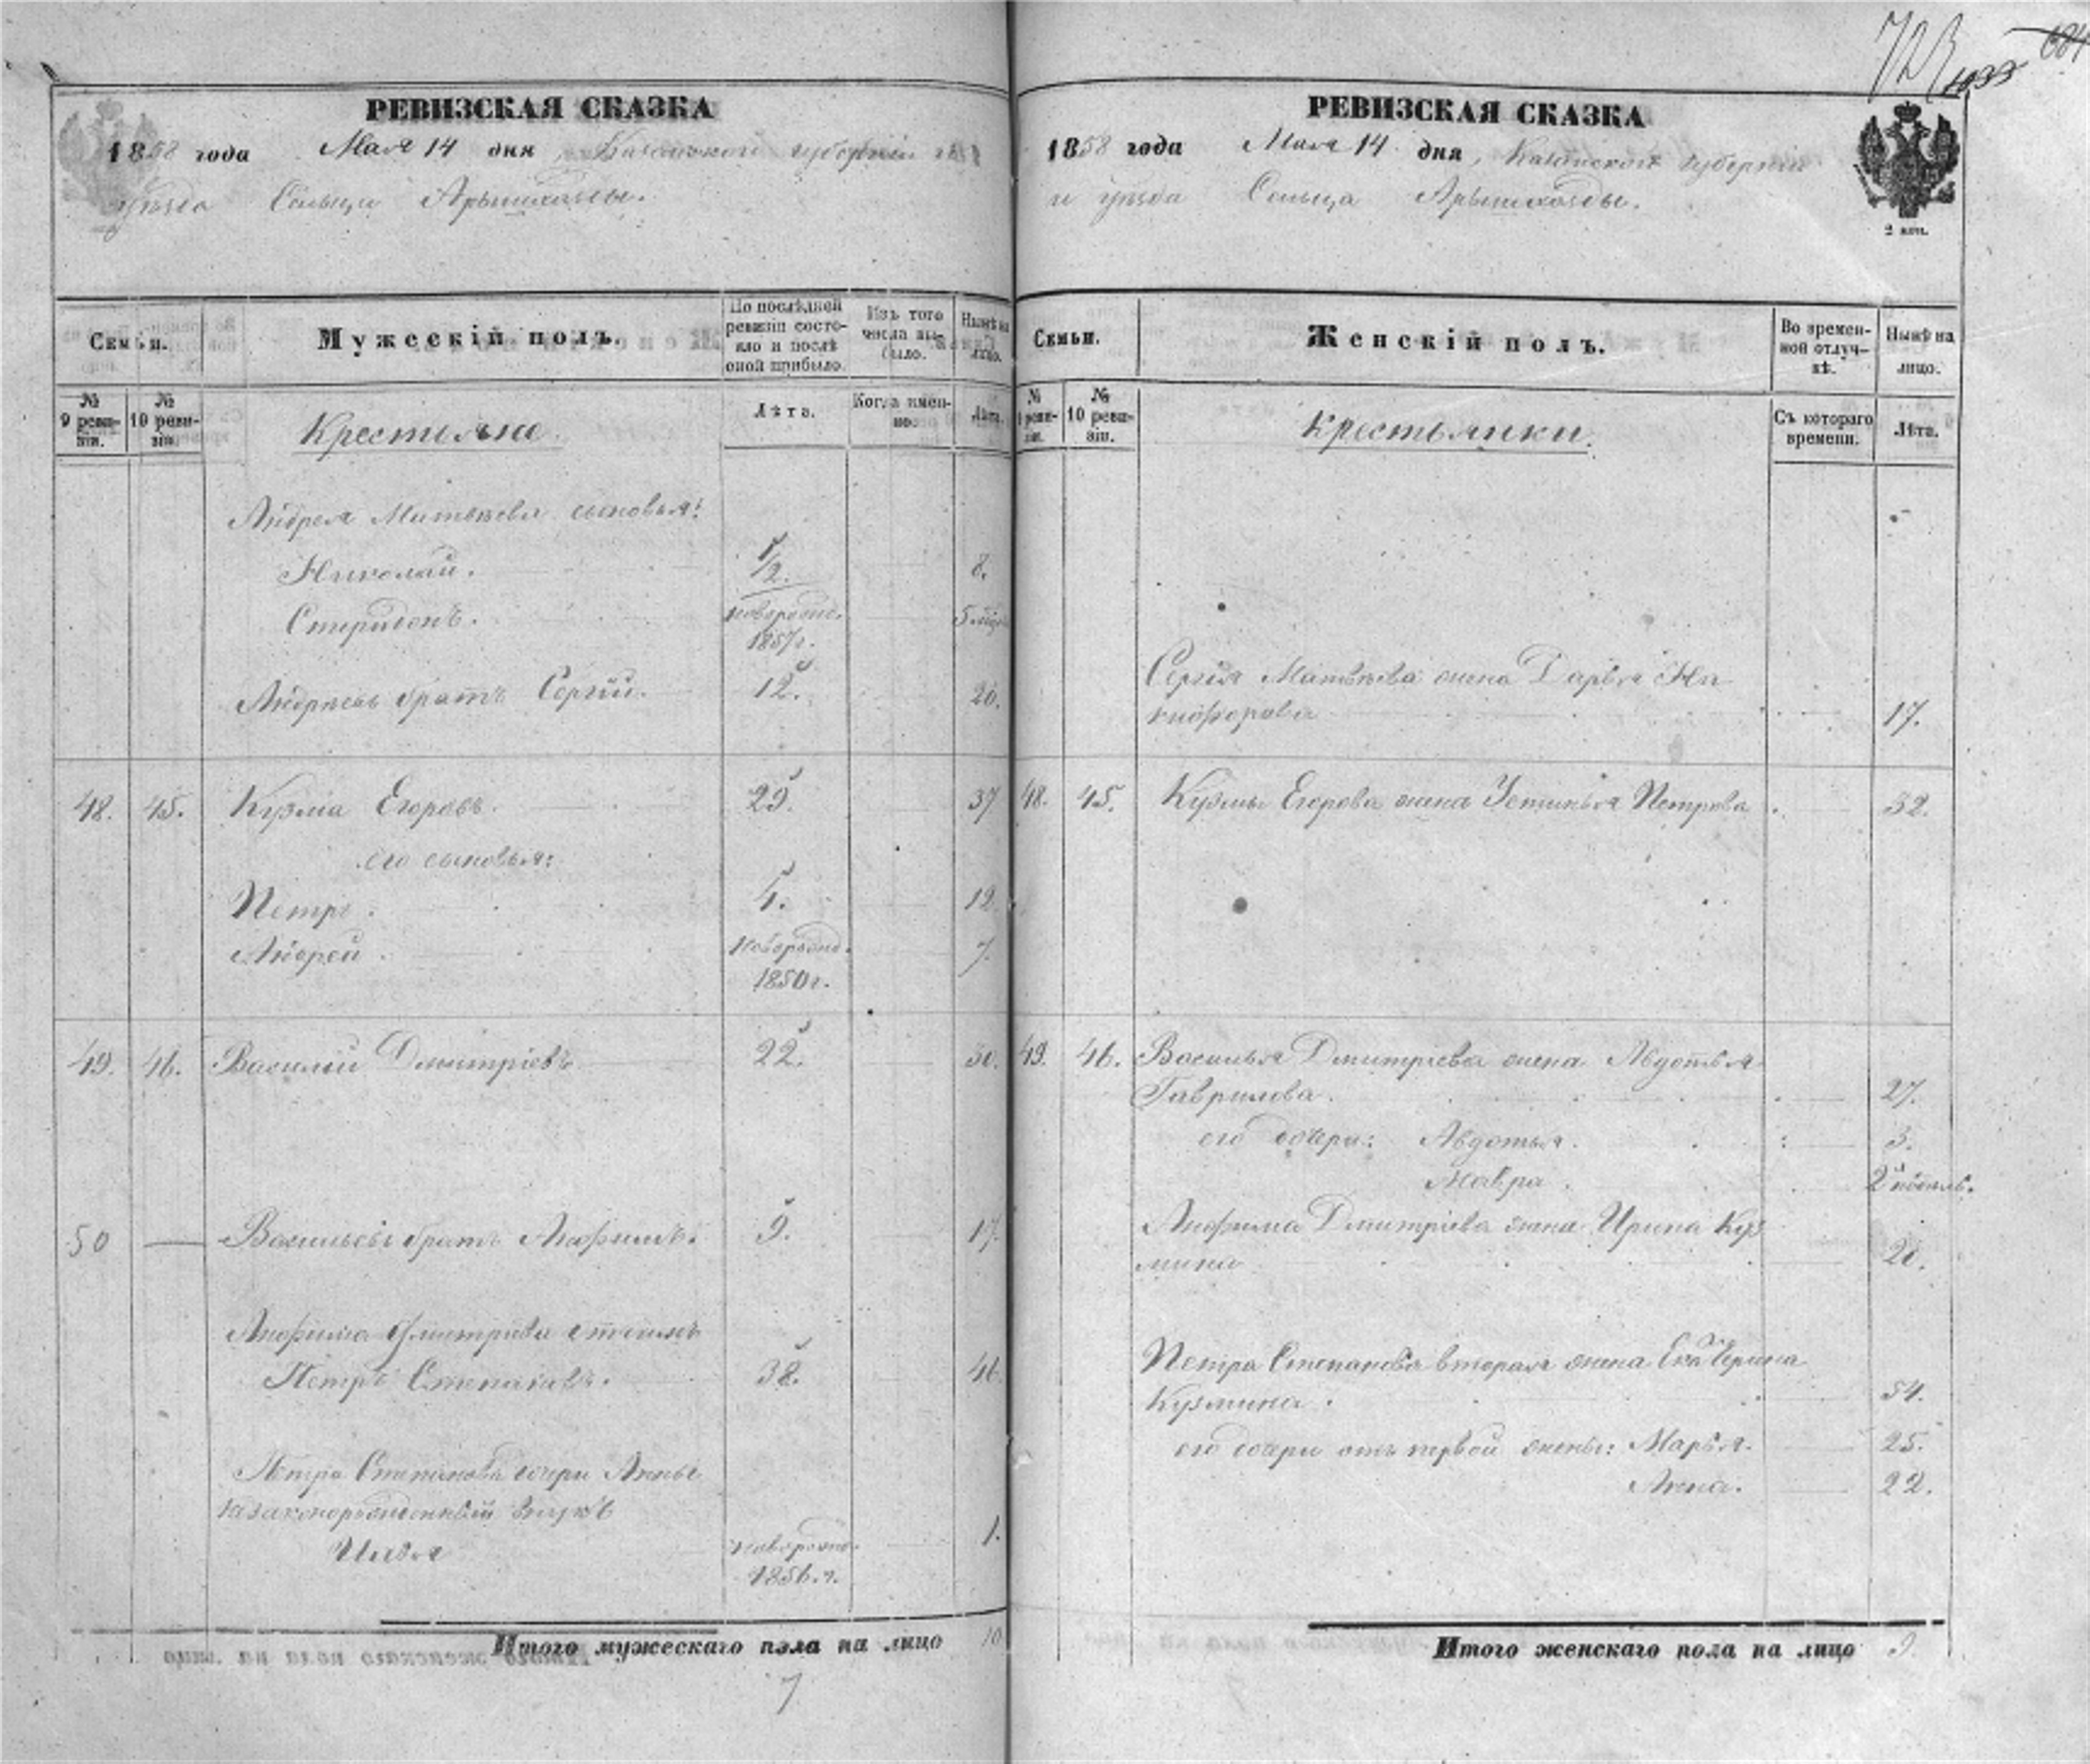 723 1033 684
РЕВИЗСКАЯ СКАЗКА
1858 года Мая 14 дня, Казанской губерніи
уѣзда Сельца Арышхазды.
Семьи.
Мужескій полъ.
По послѣдней ревизіи состояло и послѣ оной прибыло.
Изъ того числа выбыло.
Нынѣ на лицо.
№ 9 ревизіи.
№ 10 ревизіи.
Крестьяне
Лѣта.
Когда именно.
Лѣта.
Андрея Матвѣева сыновья:
Николай. 1/2. 8.
Спиридонъ. новорожд. 1857г. 5 мѣс.
Андреевъ братъ Сергѣй. 12. 20.
48. 45. Кузма Егоровъ. 29. 37
его сыновья:
Петръ. 4. 12.
Андрей. новорожд. 1850г. 7.
49. 46. Василій Дмитріевъ 22. 30.
50 — Васильевъ братъ Анфимъ. 9. 17.
Анфима Дмитріева отчимъ
Петръ Степановъ. 38. 46.
Петра Степанова дочери Анны
незаконорожденный внукъ
Илья новорожд. 1856.г. 1.
Итого мужескаго пола на лицо 10
7
РЕВИЗСКАЯ СКАЗКА
1858 года Мая 14 дня, Казанской губерніи
и уѣзда Сельца Арышхазды.
2 коп.
Семьи.
Женскій полъ.
Во временной отлучкѣ.
Нынѣ на лицо.
№ 9 ревизіи.
№ 10 ревизіи.
Крестьянки.
Съ котораго времени.
Лѣта.
Сергѣя Матвѣева жена Дарья Ни
кифорова 17.
48. 45. Кузмы Егорова жена Устинья Петрова 32.
49. 46. Василья Дмитріева жена Авдотья
Гаврилова. 27.
его дочери: Авдотья. 3.
Мавра. 2 недѣль.
Анфима Дмитріева жена Ирина Куз
мина 20.
Петра Степанова вторая жена Екатерина
Кузмина. 54.
его дочери отъ первой жены: Марья. 25.
Анна. 22.
Итого женскаго пола на лицо 9.